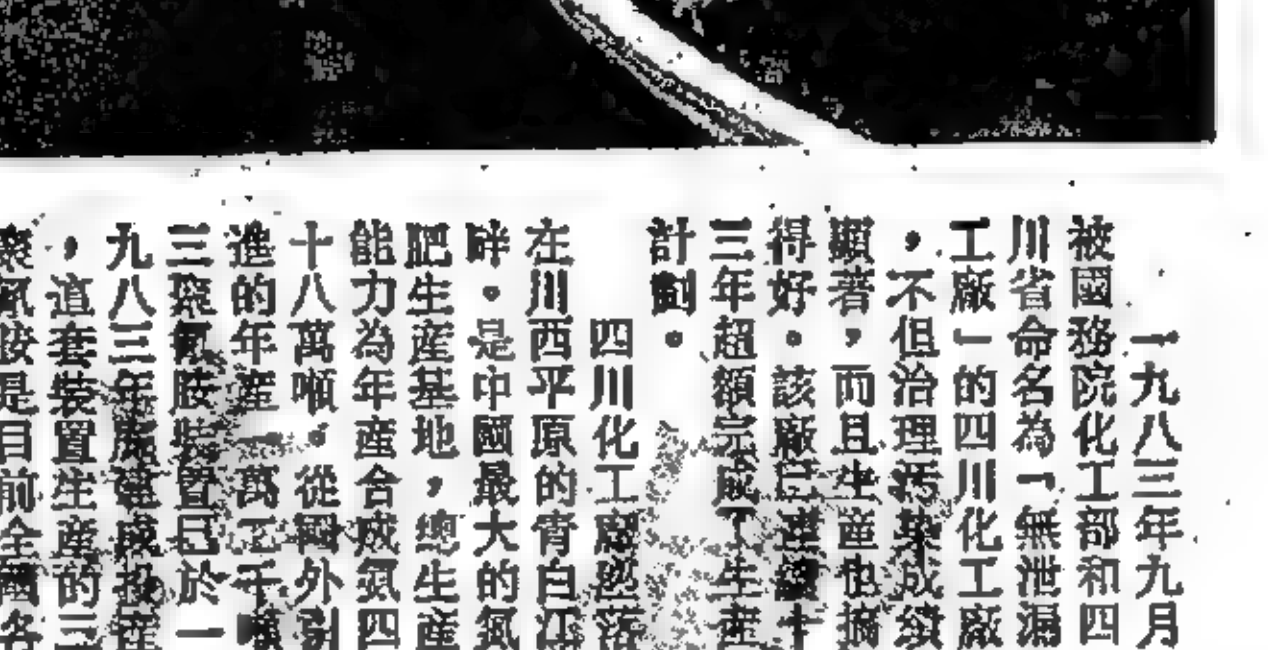 一九八三年九月
被國務院化工部和四
川省命名為「無泄漏
工廠」的四川化工廠
，不但治理污染成績
顯著，而且生産也搞
得好。該廠已連續十
三年超額完成了生産
計劃。
四川化工廠座落
在川西平原的青白江
畔。是中國最大的氮
肥生産基地，總生産
能力為年産合成氨四
十八萬噸。從國外引
進的年産一萬二千噸
三聚氰胺裝置已於一
九八三年底建成投産
，道套裝置生産的三
聚氰胺是目前全國各